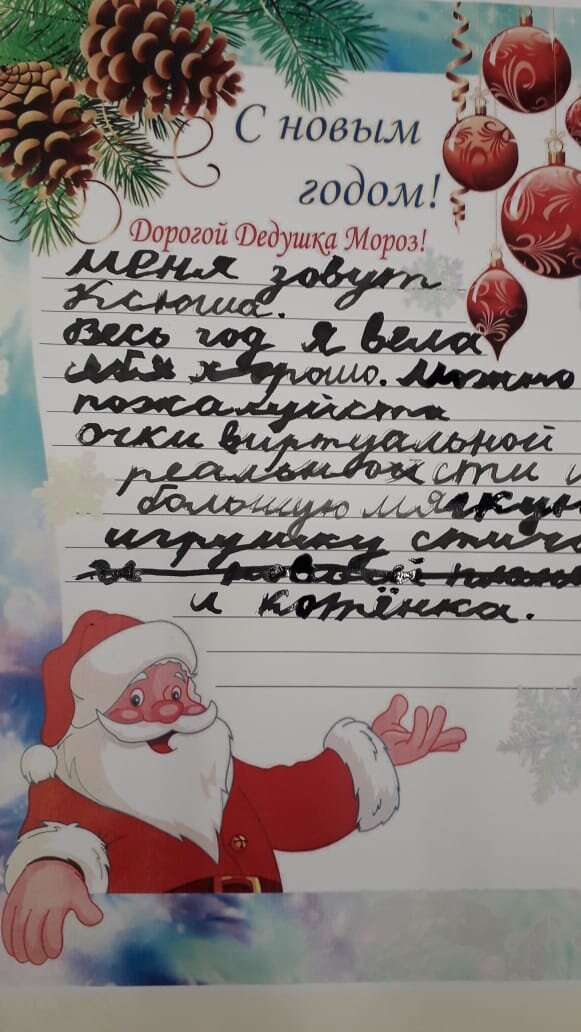 С новым
годом!
Дорогой Дедушка Мороз!
меня зовут
Ксюша.
Весь год я вела
себя хорошо. Можно
пожалуйста
очки виртуальной
реальности и
большую мягкую
игрушку стича
и котёнка.